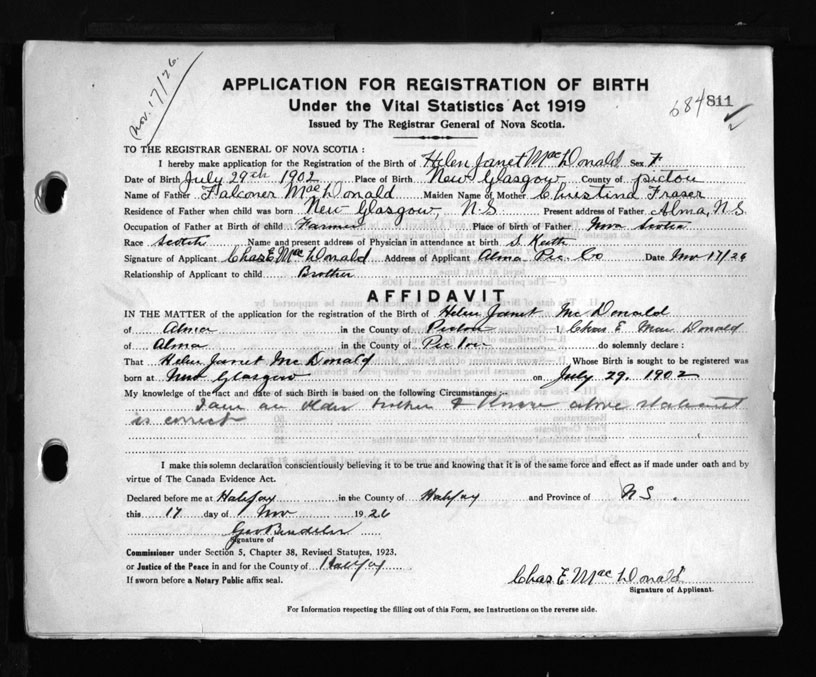 Nov. 17/26.
APPLICATION FOR REGISTRATION OF BIRTH
Under the Vital Statistics Act 1919
684 811
Issued by The Registrar General of Nova Scotia.
TO THE REGISTRAR GENERAL OF NOVA SCOTIA :
I hereby make application for the Registration of the Birth of Helen Janet MacDonald Sex F
Date of Birth July 29th 1902 Place of Birth New Glasgow County of pictou
Name of Father Falconer MacDonald Maiden Name of Mother Christina Fraser
Residence of Father when child was born New Glasgow, N.S Present address of Father Alma, N.S.
Occupation of Father at Birth of child Farmer Place of birth of Father Nova Scotia
Race Scotch Name and present address of Physician in attendance at birth S. Keith
Signature of Applicant Chas E. MacDonald Address of Applicant Alma Pic. Co Date Nov 17/26
Relationship of Applicant to child Brother
AFFIDAVIT
IN THE MATTER of the application for the registration of the Birth of Helen Janet McDonald
of Alma in the County of Pictou I Chas. E. MacDonald
of Alma in the County of Pictou do solemnly declare :
That Helen Janet McDonald Whose Birth is sought to be registered was
born at New Glasgow on July 29, 1902
My knowledge of the fact and date of such Birth is based on the following Circumstances :-
I am an older brother & know above statement
is correct
I make this solemn declaration conscientiously believing it to be true and knowing that it is of the same force and effect as if made under oath and by
virtue of The Canada Evidence Act.
Declared before me at Halifax in the County of Halifax and Province of N.S.
this 17 day of Nov 1926
Signature of
Commissioner under Section 5, Chapter 38, Revised Statutes, 1923.
or Justice of the Peace in and for the County of Halifax
If sworn before a Notary Public affix seal.
Chas. E. MacDonald
Signature of Applicant.
For Information respecting the filling out of this Form, see Instructions on the reverse side.